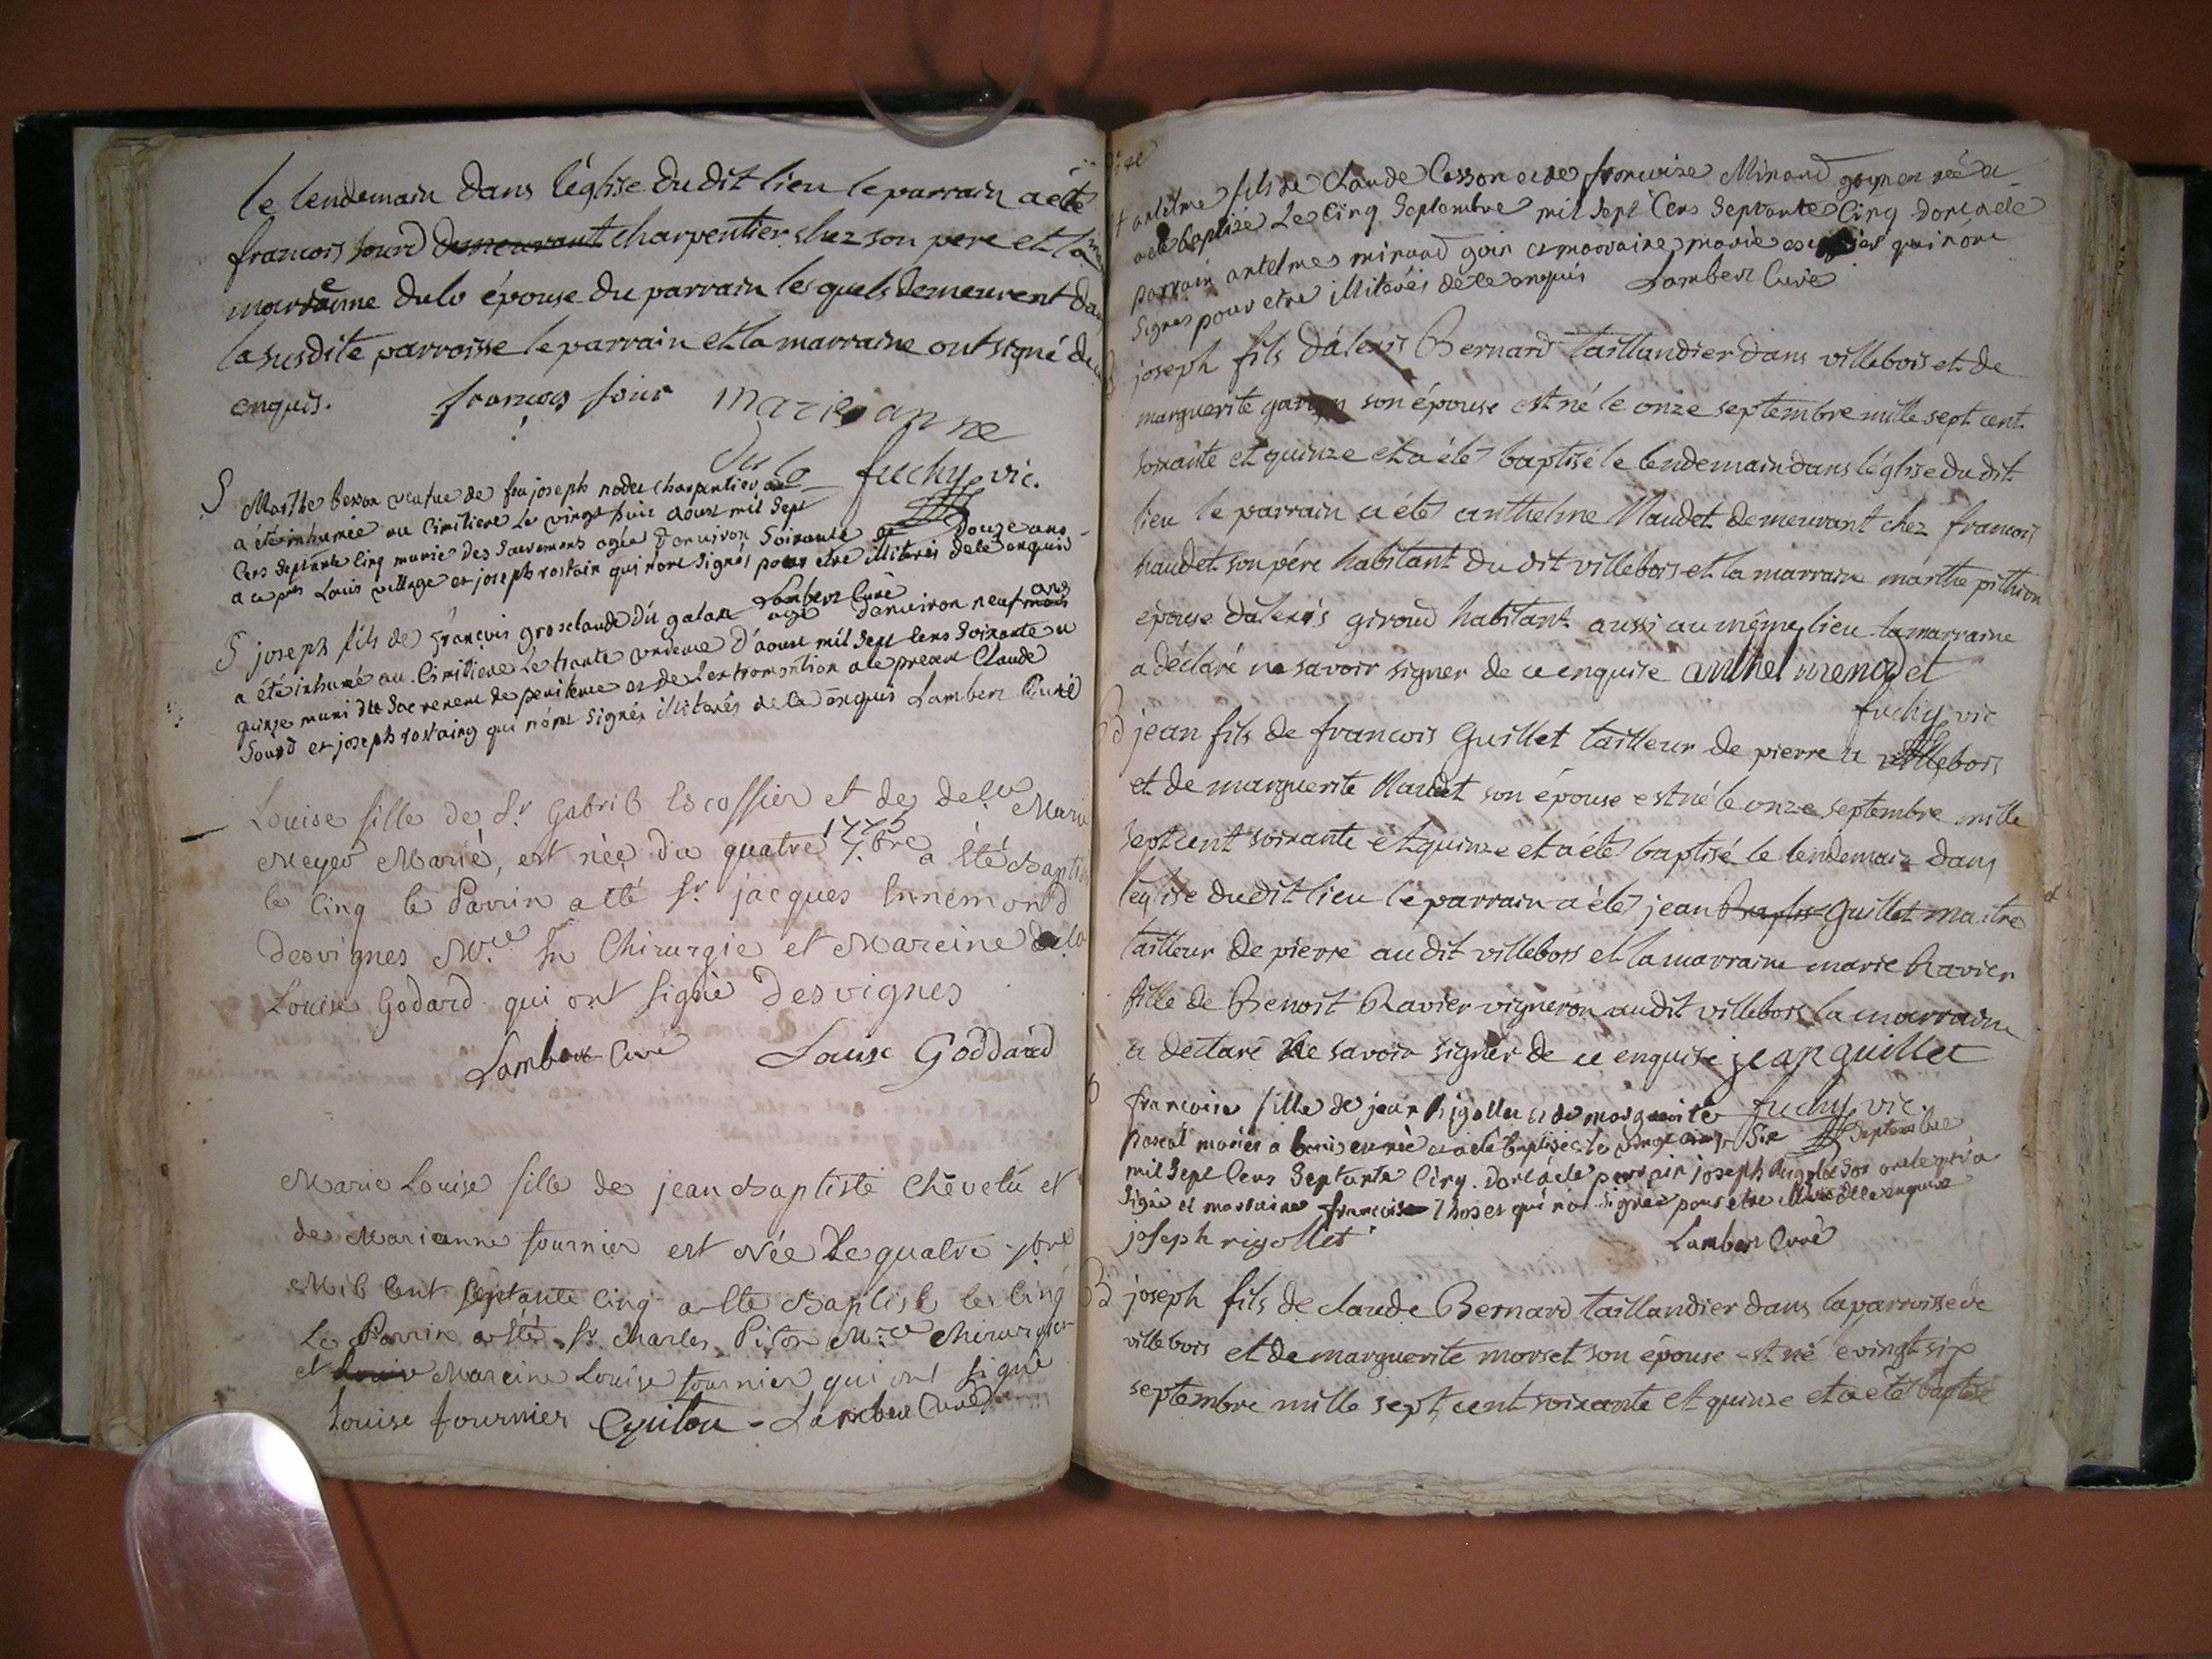 le lendemain dans l'église du dit lieu le parrain a été
francois sourd demeurant charpentier chez son pere et la
marianne dulo épouse du parrain lesquels demeurent da
la susdite parroisse le parrain et la marraine ont signé de
enquis. françois sour marie anne
dulo fuchy vic.
S Marthe besson veufue de feu joseph nodet charpentier
a été inhumée au Cimitiere Le vingt huit aoust mil Sept
Cens Septante Cinq munie des Sacremens agée d'environ Soixante et douze ans
a ce pres Louis village et joseph rostain qui n'ont Signés pour etre illiterés de ce enquis
Lambert Curé
S joseph fils de françois grosclaude du galare agé d'environ neuf mois ans
a été inhumé au Cimitiere Le trante d'aoust mil Sept Cens Soixante et
quinze muni du Sacrement de penitence et de L'extromontion a ce present Claude
Sourd et joseph rostaing qui n'ont Signés illiterés de ce enquis Lambert Curé
Louise fille de Sr Gabriel Escoffier et de delle Marie
Meyer Marié, est née du quatre 7.bre 1775 a été Baptis
le Cinq le Parrin a été Sr jacques Innemond
Desvignes Mre En Chirurgie et Mareine delle
Louise Godard qui ont Signé Desvignes
Lambert Curé Louise Goddard
Marie Louise fille de jean Baptiste Chêvelu et
de Marianne fournier est Née Le quatre 7bre
Mil Cent Septante Cinq a été Baptisé le Cinq
Le Parrin a été Sr Charles Piton Mre Chirurgien
et Mareine Louise fournier qui ont Signé
Louise fournier Cpiton - Lambert Curé
antelme fils de Claude Cesson et de francoise Minaud goyn et né et
a été baptizé Le Cinq Septembre mil Sept Cens Septante Cinq dont a été
parrain antelme minaud goin et marraine marie qui n'ont
Signés pour etre illiterés de ce enquis Lambert Curé
joseph fils d'alexis Bernard taillandier dans villebois et de
marguerite son épouse est né le onze septembre mille sept cent
soixante et quinze et a été baptisé le lendemain dans l'église du dit
lieu le parrain a été anthelme Naudet demeurant chez francois
naudet son pére habitant du dit villebois et la marraine marthe pithion
epouse d'alexis giroud habitant aussi au même lieu la marraine
a déclaré ne savoir signer de ce enquise anthelme nodet
fuchy vic
B jean fils de francois Guillet tailleur de pierre a villebois
et de marguerite Naudet son épouse est né le onze septembre mille
sept cent soixante et quinze et a été baptisé le lendemain dans
l'eglise du dit lieu le parrain a été jean Guillet maitre
tailleur de pierre au dit villebois et la marraine marie Ravier
fille de Benoit Ravier vigneron au dit villebois la marraine
a declaré Ne savoir signer de ce enquise jean guillet
fuchy vic.
B francoise fille de jean Rigollet et de marguerite
pascal mariés a bouis et née et a été baptisée le vingt Six Septembre
mil Sept Cens Septante Cinq. Dont a été parrain joseph Rigollet Son oncle qui a
Signé et marraine francoise qui n'a Signée pour etre illiterée de ce enquise
joseph rigollet Lambert Curé
B joseph fils de claude Bernard taillandier dans la parroisse de
villebois et de marguerite morset son épouse est né le vingt six
septembre mille sept cent soixante et quinze et a été baptisé